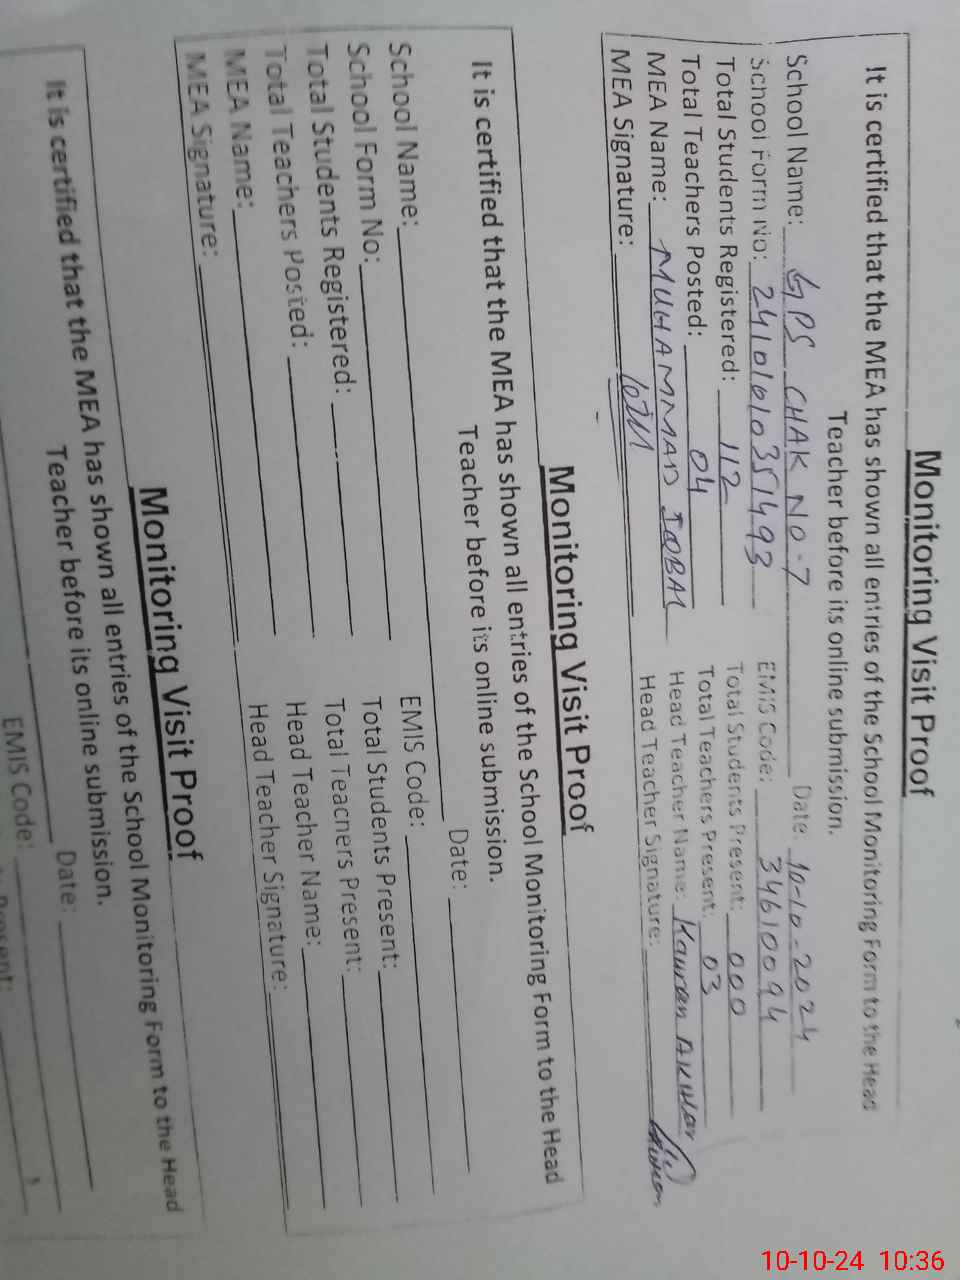 Monitoring Visit Proof
It is certified that the MEA has shown all entries of the School Monitoring Form to the Head
Teacher before its online submission.
School Name: GPS CHAK NO.7 Date: 10-10-2024
School Form No: 24101010351493 EMIS Code: 34610094
Total Students Registered: 112 Total Students Present: 000
Total Teachers Posted: 04 Total Teachers Present: 03
MEA Name: MUHAMMAD IQBAL Head Teacher Name: Kamran AKHtar
MEA Signature: Head Teacher Signature:
Monitoring Visit Proof
It is certified that the MEA has shown all entries of the School Monitoring Form to the Head
Teacher before its online submission.
School Name: Date:
School Form No: EMIS Code:
Total Students Registered: Total Students Present:
Total Teachers Posted: Total Teachers Present:
MEA Name: Head Teacher Name:
MEA Signature: Head Teacher Signature:
Monitoring Visit Proof
It is certified that the MEA has shown all entries of the School Monitoring Form to the Head
Teacher before its online submission.
Date:
EMIS Code:
Present:
10-10-24 10:36